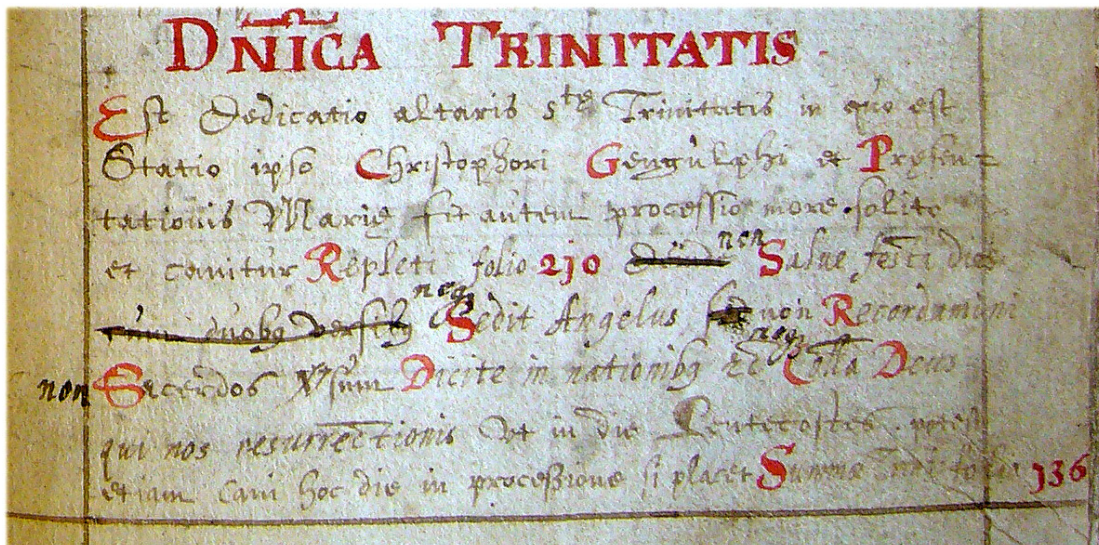 DÑICA TRINITATIS.
Est Dedicatio altaris s^tę Trinitatis in quo est
Statio ipso Christophori Gengulphi et Pręsen=
tationis Marię fit autem processio more solito
et canitur Repleti folio 210 non Salue festa dies
cum duobq versibq neq Sedit Angelus, non Recordamini
non Sacerdos Dicite in nationibq Colla Deus
qui nos resurrectionis Vt in die Pentecostes. potest
etiam cani hoc die in processione si placet Summę 136